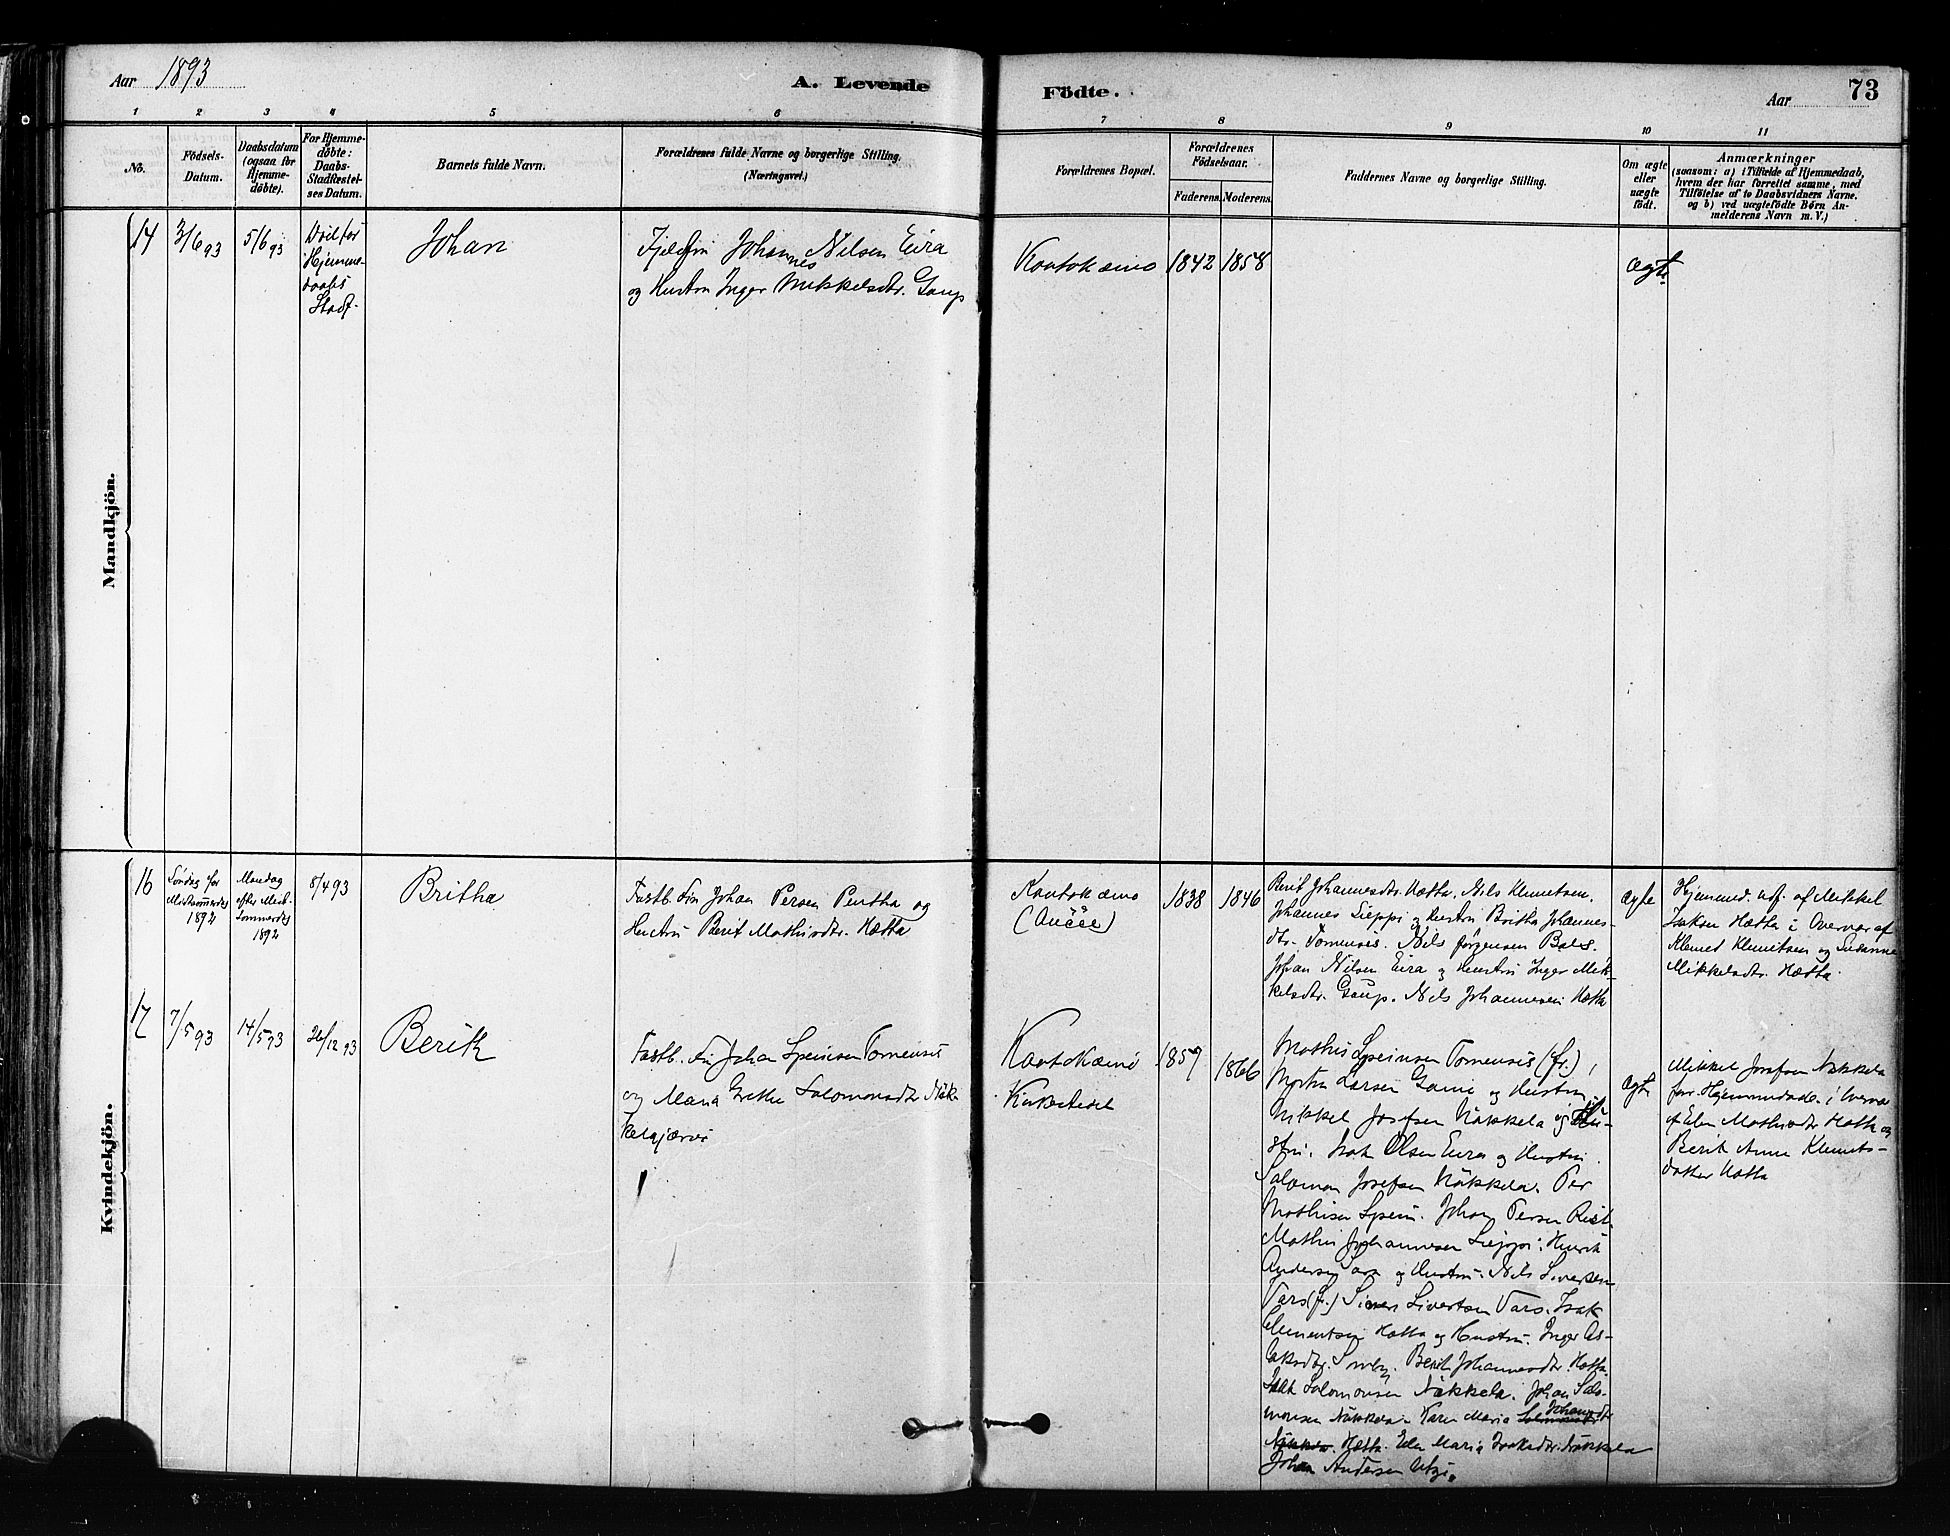 Aar 1893
A. Levende
Födte.
Aar
73
1 2 3 4 5 6 7 8 9 10 11
No.
Födsels-
Datum.
Daabsdatum
(ogsaa for
Hjemme-
döbte).
For Hjemme-
döbte:
Daabs-
Stadfæstel-
ses Datum.
Barnets fulde Navn.
Forældrenes fulde Navne og borgerlige Stilling.
(Næringsvei.)
Forældrenes Bopæl.
Forældrenes
Födselsaar.
Faderens. Moderens.
Faddernes Navne og borgerlige Stilling.
Om ægte
eller
uægte
födt.
Anmærkninger
(saasom: a) i Tilfælde af Hjemmedaab,
hvem der har forrettet samme, med
Tilföielse af to Daabsvidners Navne.
og b) ved uægtefödte Börn An-
melderens Navn m. V.)
Mandkjön.
14
3/6 93
5/6 93
Död før
Hjemme-
daabs
Stadf.
Johan
Fjeldfin Johannes Nilsen Eira
og Hustru Inger Mikkelsdtr. Gaup
Kautokæino
1842
1858
ægte
Kvindekjön.
16
Søndag før
Midsommerdag
1892
Mandag
efter Mid-
sommerdag
1892
8/4 93
Britha
Fastb. Fin Johan Persen Pentha og
Hustru Berit Mathisdtr. Hætta
Kautokæino
1838
1846
Berit Johannesdtr. Hætta. Nils Klemetsen.
Johannes Sieppi og Hustru Britha Johannes-
dtr. Tornensis. Nils Jørgensen Bals.
Johan Nilsen Eira og Hustru Inger Mik-
kelsdtr. Gaup. Nils Johannesen Hætta
Ægte
Hjemmed. udf. af Mikkel
Isaksen Hætta i Overvær af
Klemet Klemetsen og Susanne
Mikkelsdtr. Hætta.
17
7/5 93
14/5 93
26/12 93
Berith
Fastb. Fin Johan Speinsen Tornensis
og Maria Grethe Salomonsdtr. Näk-
kelajærvi
Kautokæino
1857
1866
Mathis Speinsen Tornensis (f.),
Morten Larsen Gaino og Hustru.
Mikkel Josefsen Näkkela og Hu-
stru. Isak Olsen Eira og Hustru.
Salomon Josefsen Näkkela. Per
Mathisen Spein. Johan Persen Rist.
Mathis Johannesen Sieppi. Henrik
Andersen Sara og Hustru. Nils Sivertsen
Vars (f.) Sivert Sivertsen Vars. Isak
Clementsen Hætta og Hustru. Inger As-
laksdtr. Berit Johannesdtr. Hætta.
Isak Salomonsen Näkkela. Johan Salo-
monsen Näkkela. Karen Maria Johansdtr
Hætta. Elen Maria Isaksdtr. Näkkela
Johan Andersen Utzi.
ægte
Mikkel Josefsen Näkkela
forr. Hjemmedaab. i Overvær
af Elen Mathisdtr Hætta og
Berit Anne Klemets-
datter Hætta